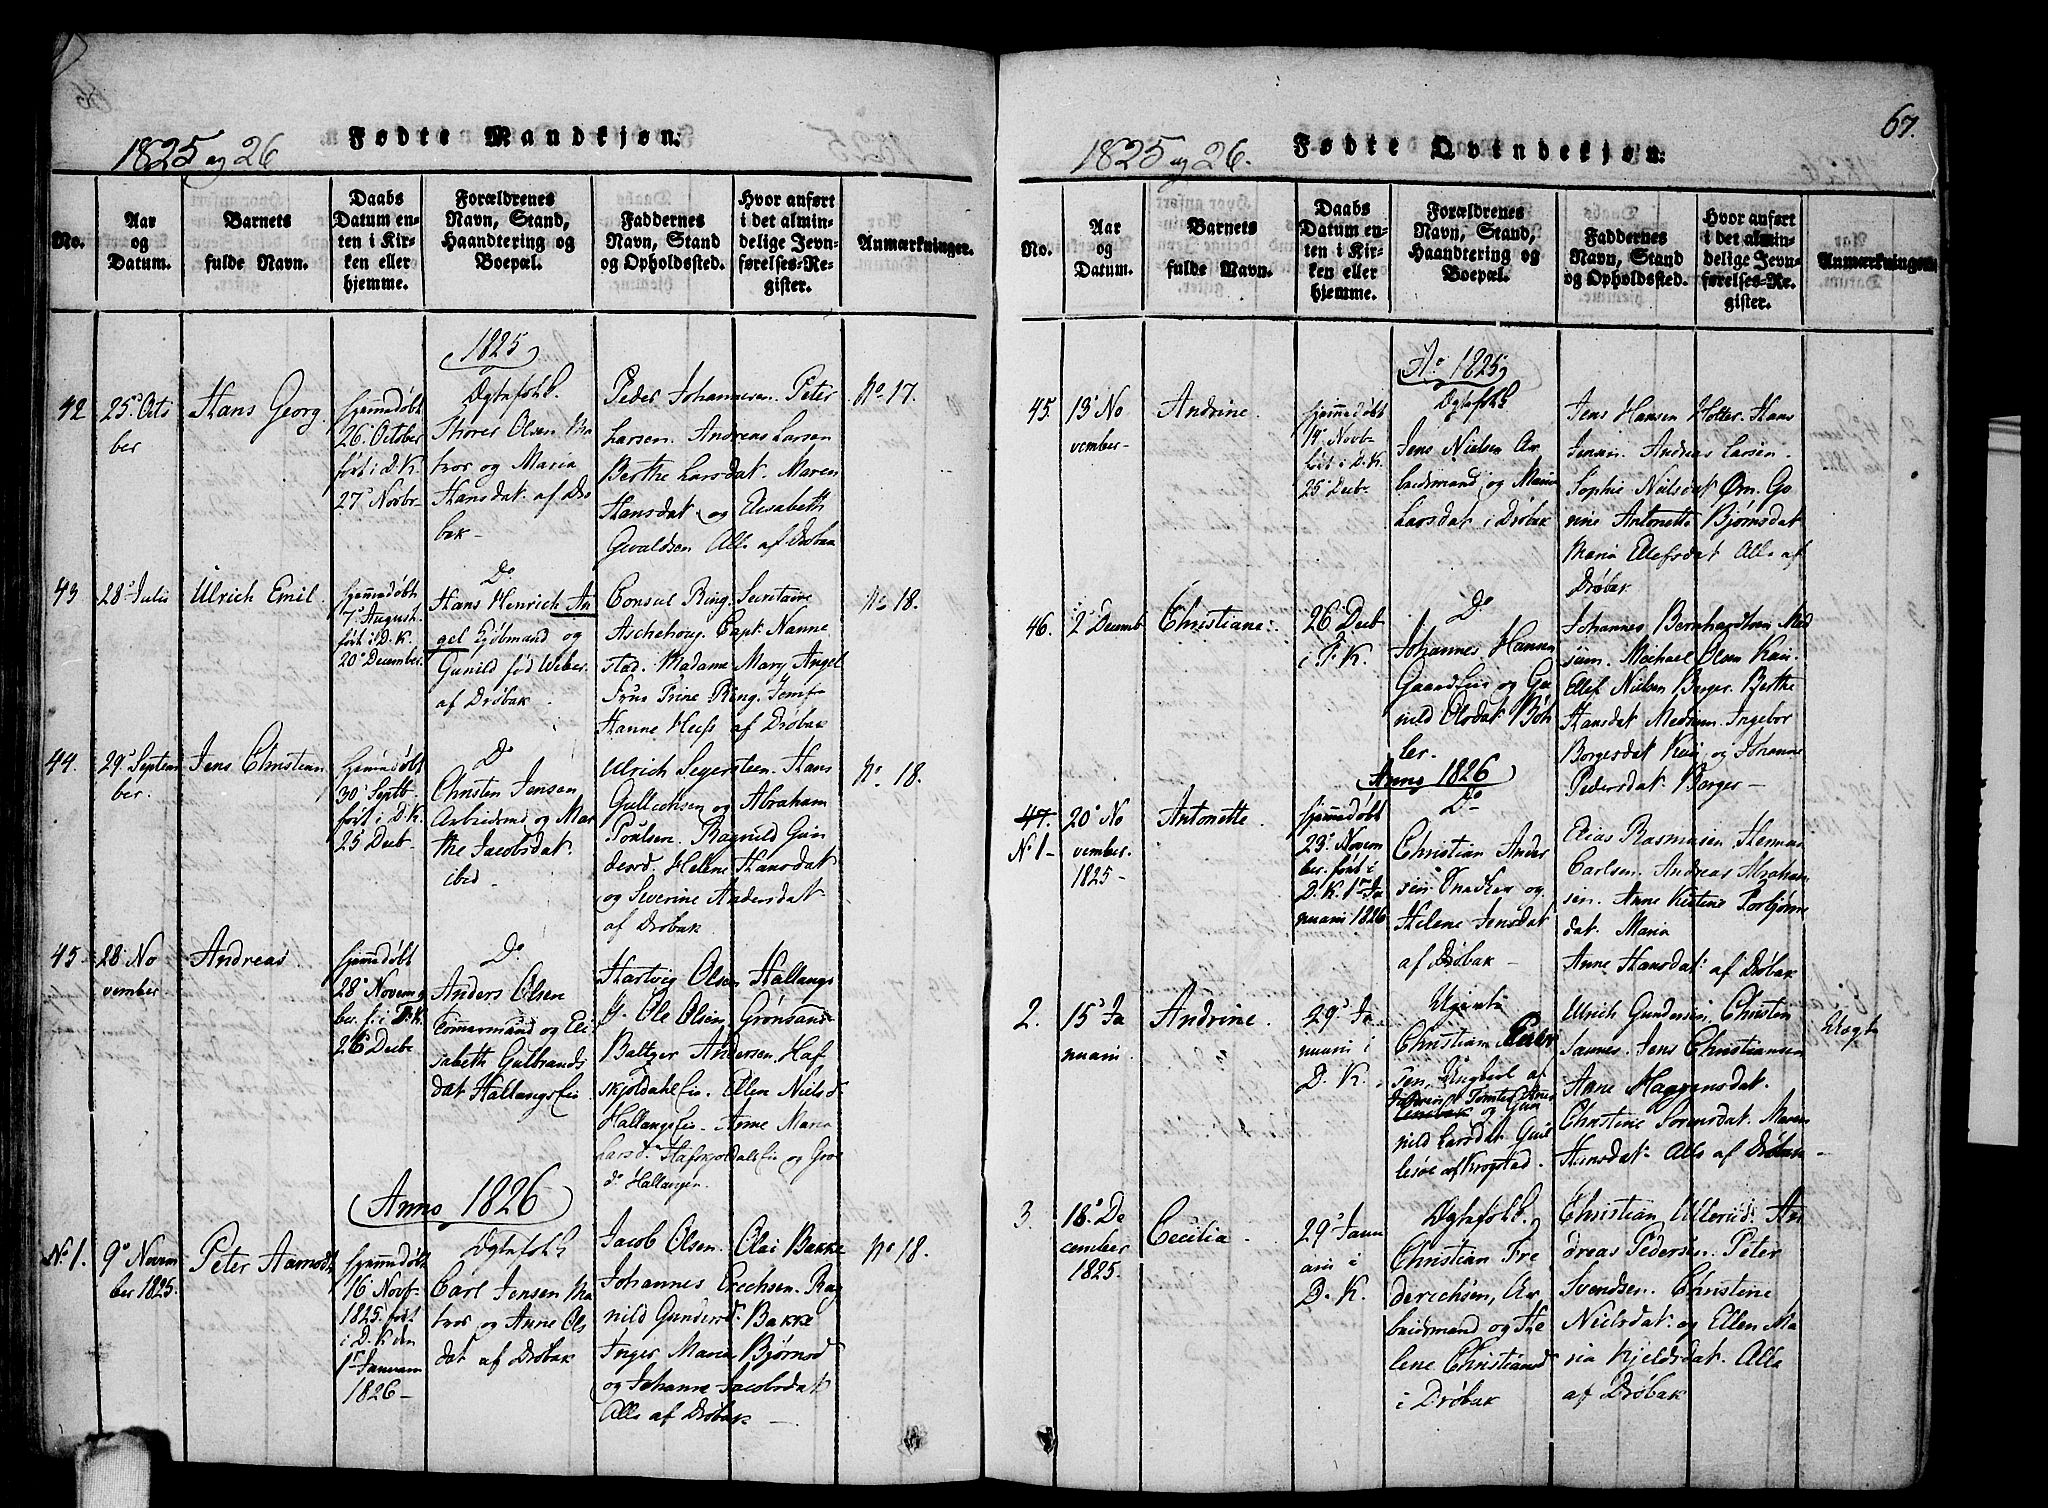 1825 og 26
Fødte Mandkjøn.
No.
Aar
og
Datum.
Barnets
fulde Navn.
Daabs
Datum en-
ten i Kir-
ken eller
hjemme.
Forældrenes
Navn, Stand,
Haandtering og
Boepæl.
Faddernes
Navn, Stand
og Opholdssted.
Hvor anført
i det almin-
delige Jevn-
førelses-Re-
gister.
Anmærkninger.
1825
42
25de Octo
ber
Hans Georg.
hjemmedøbt
26 October
ført i D. K.
27de Novbr
Ægtefolk.
Thorer Olsen Ma
tros og Maria
Hansdat. af Drø
bak
Peder Johannesen. Peter
Larsen. Andreas Larsen
Berthe Larsdat. Maren
Hansdat. og Elisabeth
Gevaldsen Alle af Drøbak
No 17.
43
28de Julii
Ulrich Emil
hjemmedøbt
7de August.
ført i D. K.
20de December.
Do
Hans Henrich An
gel Kjøbmand og
Gunild fød Weber
af Drøbak
Consul Ring. Secretaire
Aschehoug. Capt. Nanne
stad. Madame Mary Angel
Frue Trine Ring. Jomfr
Hanne Hess af Drøbak
No 18.
44.
29de Septem
ber.
Jens Christian
hjemmedøbt
30 Septb
ført i D. K.
25 Decb
Do
Christen Jensen
Arbeidsmd og Mar
the Jacobsdat.
ibid
Ulrich Segersteen. Hans
Gullichsen og Abraham
Poulsen. Ragnild Gun
dersd. Helene Hansdat
og Severine Andersdat
af Drøbak
No 18.
45
28 No
vember
Andreas
hjemmedøbt
28de Novem
ber. f. i D. K.
26 Decb
Do
Anders Olsen
Tømmermand og Eli
sabeth Gulbrands
dat Hallangseie
Hartvig Olsen Hallangs
E. Ole Olsen Grønsand
Baltzer Andersen. Haf
skjoldaleie. Ellen Nielsd
Hallangseie. Anne Maria
Larsd. Hafskjoldaleie og Gro
do Hallangen
Anno 1826
No 1.
9de Novem
ber 1825.
Peter Aamodt
hjemmedøbt
16 Novb
1825. ført
i D. K. den
1ste Januarii
1826
Ægtefolk
Carl Jensen Ma
tros og Anne Ols
dat af Drøbak
Jacob Olsen. Olai Bakke
Johannes Erichsen. Rag
nild Gundersd. Bakke
Inger Maria Bjørnsd
og Johanne Jacobsdat
Alle af Drøbak
No 18.
67.
1825 og 26.
Fødte Qvindekjøn.
No.
Aar
og
Datum.
Barnets
fulde Navn.
Daabs
Datum en-
ten i Kir-
ken eller
hjemme.
Forældrenes
Navn, Stand,
Haandtering og
Boepæl.
Faddernes
Navn, Stand
og Opholdssted.
Hvor anført
i det almin-
delige Jevn-
førelses-Re-
gister.
Anmærkninger.
Ao 1825
45.
13de No
vember
Andrine.
hjemmedøbt
14de Novb
ført i D. K.
25 Decb.
Ægtefolk
Jens Nielsen Ar
beidsmand og Maria
Larsdat i Drøbak
Jens Hansen Holter. Hans
Jensen. Andreas Larsen.
Sophie Nielsdat Ørn. Go
rine Antonette Bjørnsdat
Maria Ellefsdat Alle af
Drøbak
46.
2de Decemb
Christiane.
26 Decb
i F. K.
Do
Johannes Hansen
Gaardbruger og Gu
nild Olsdat. Bøh
ler.
Johannes Bernhardtsen Med
sum. Michael Olsen Kaii.
Ellef Nielsen Borger. Berthe
Hansdat Medsum. Ingebor
Borgersdat Kaii og Johanne
Pedersdat. Borger
Anno 1826
47.
No 1
20de No
vember.
1825
Antonette.
hjemmedøbt
23de Novem
ber. ført i
D. K. 1ste Ja
nuarii 1826
Do
Christian Ander
sen Snedker og
Helene Jensdat
af Drøbak
Elias Rasmusen Herman
Carlsen. Andreas Abraham
sen. Anne Kirstine Torbjørns
dat. Maria
Anne Hansdat. af Drøbak
2.
15de Ja
nuarii
Andrine.
29de Ja
nuarii i
D. K.
Uægte
Christian
sen, Ungkarl af
og Gun
nild Larsdat.
af Krogstad.
Ulrich Gundersen, Christen
Sannes. Jens Christiansen
Anne Magrensdat.
Christine Sorensdat. Maren
Hansdat. Alle af Drøbak
Uægte
3.
18de De
cember
1825.
Cecilia
29de Janu
arii i
D. K.
Ægtefolk.
Christian Fre
derichsen, Ar
beidsmand og He
lene Christiansd
i Drøbak
Christian Ullerud. An
dreas Pedersen. Peter
Svendsen. Christine
Nielsdat. og Ellen Ma
ria Kjeldsdat. Alle
af Drøbak